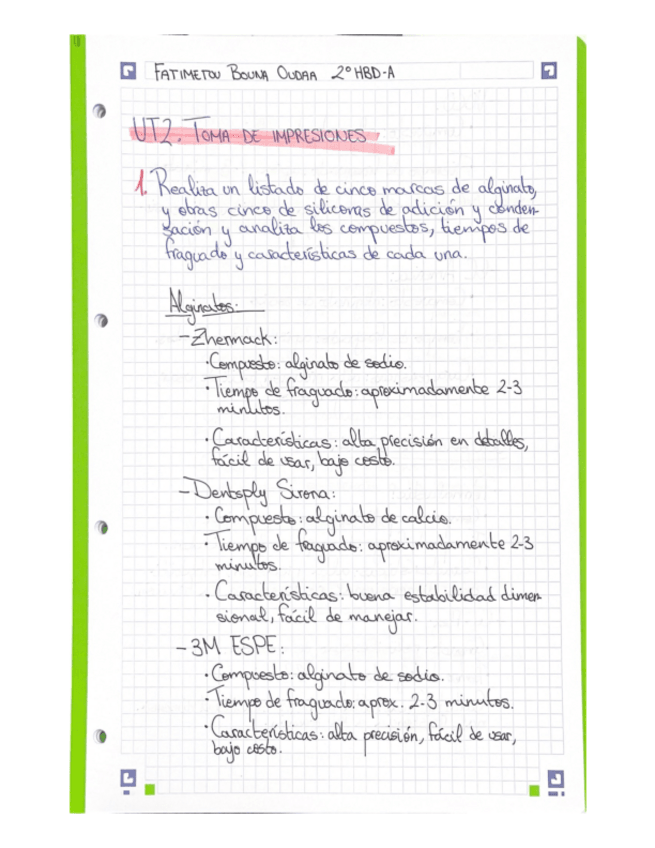 FATIMETOU BOUNA OUDAA 2º HBD-A
UT2. TOMA DE IMPRESIONES
1. Realiza un listado de cinco marcas de alginato,
y otras cinco de siliconas de adición y conden-
sación y analiza los compuestos, tiempos de
fraguado y características de cada una.
Alginatos:
- Zhermack:
· Compuesto: alginato de sodio.
· Tiempo de fraguado: aproximadamente 2-3
minutos.
· Características: alta precisión en detalles,
fácil de usar, bajo costo.
- Dentsply Sirona:
· Compuesto: alginato de calcio.
· Tiempo de fraguado: aproximadamente 2-3
minutos.
· Características: buena estabilidad dimen-
sional, fácil de manejar.
- 3M ESPE:
· Compuesto: alginato de sodio.
· Tiempo de fraguado: aprox. 2-3 minutos.
· Características: alta precisión, fácil de usar,
bajo costo.